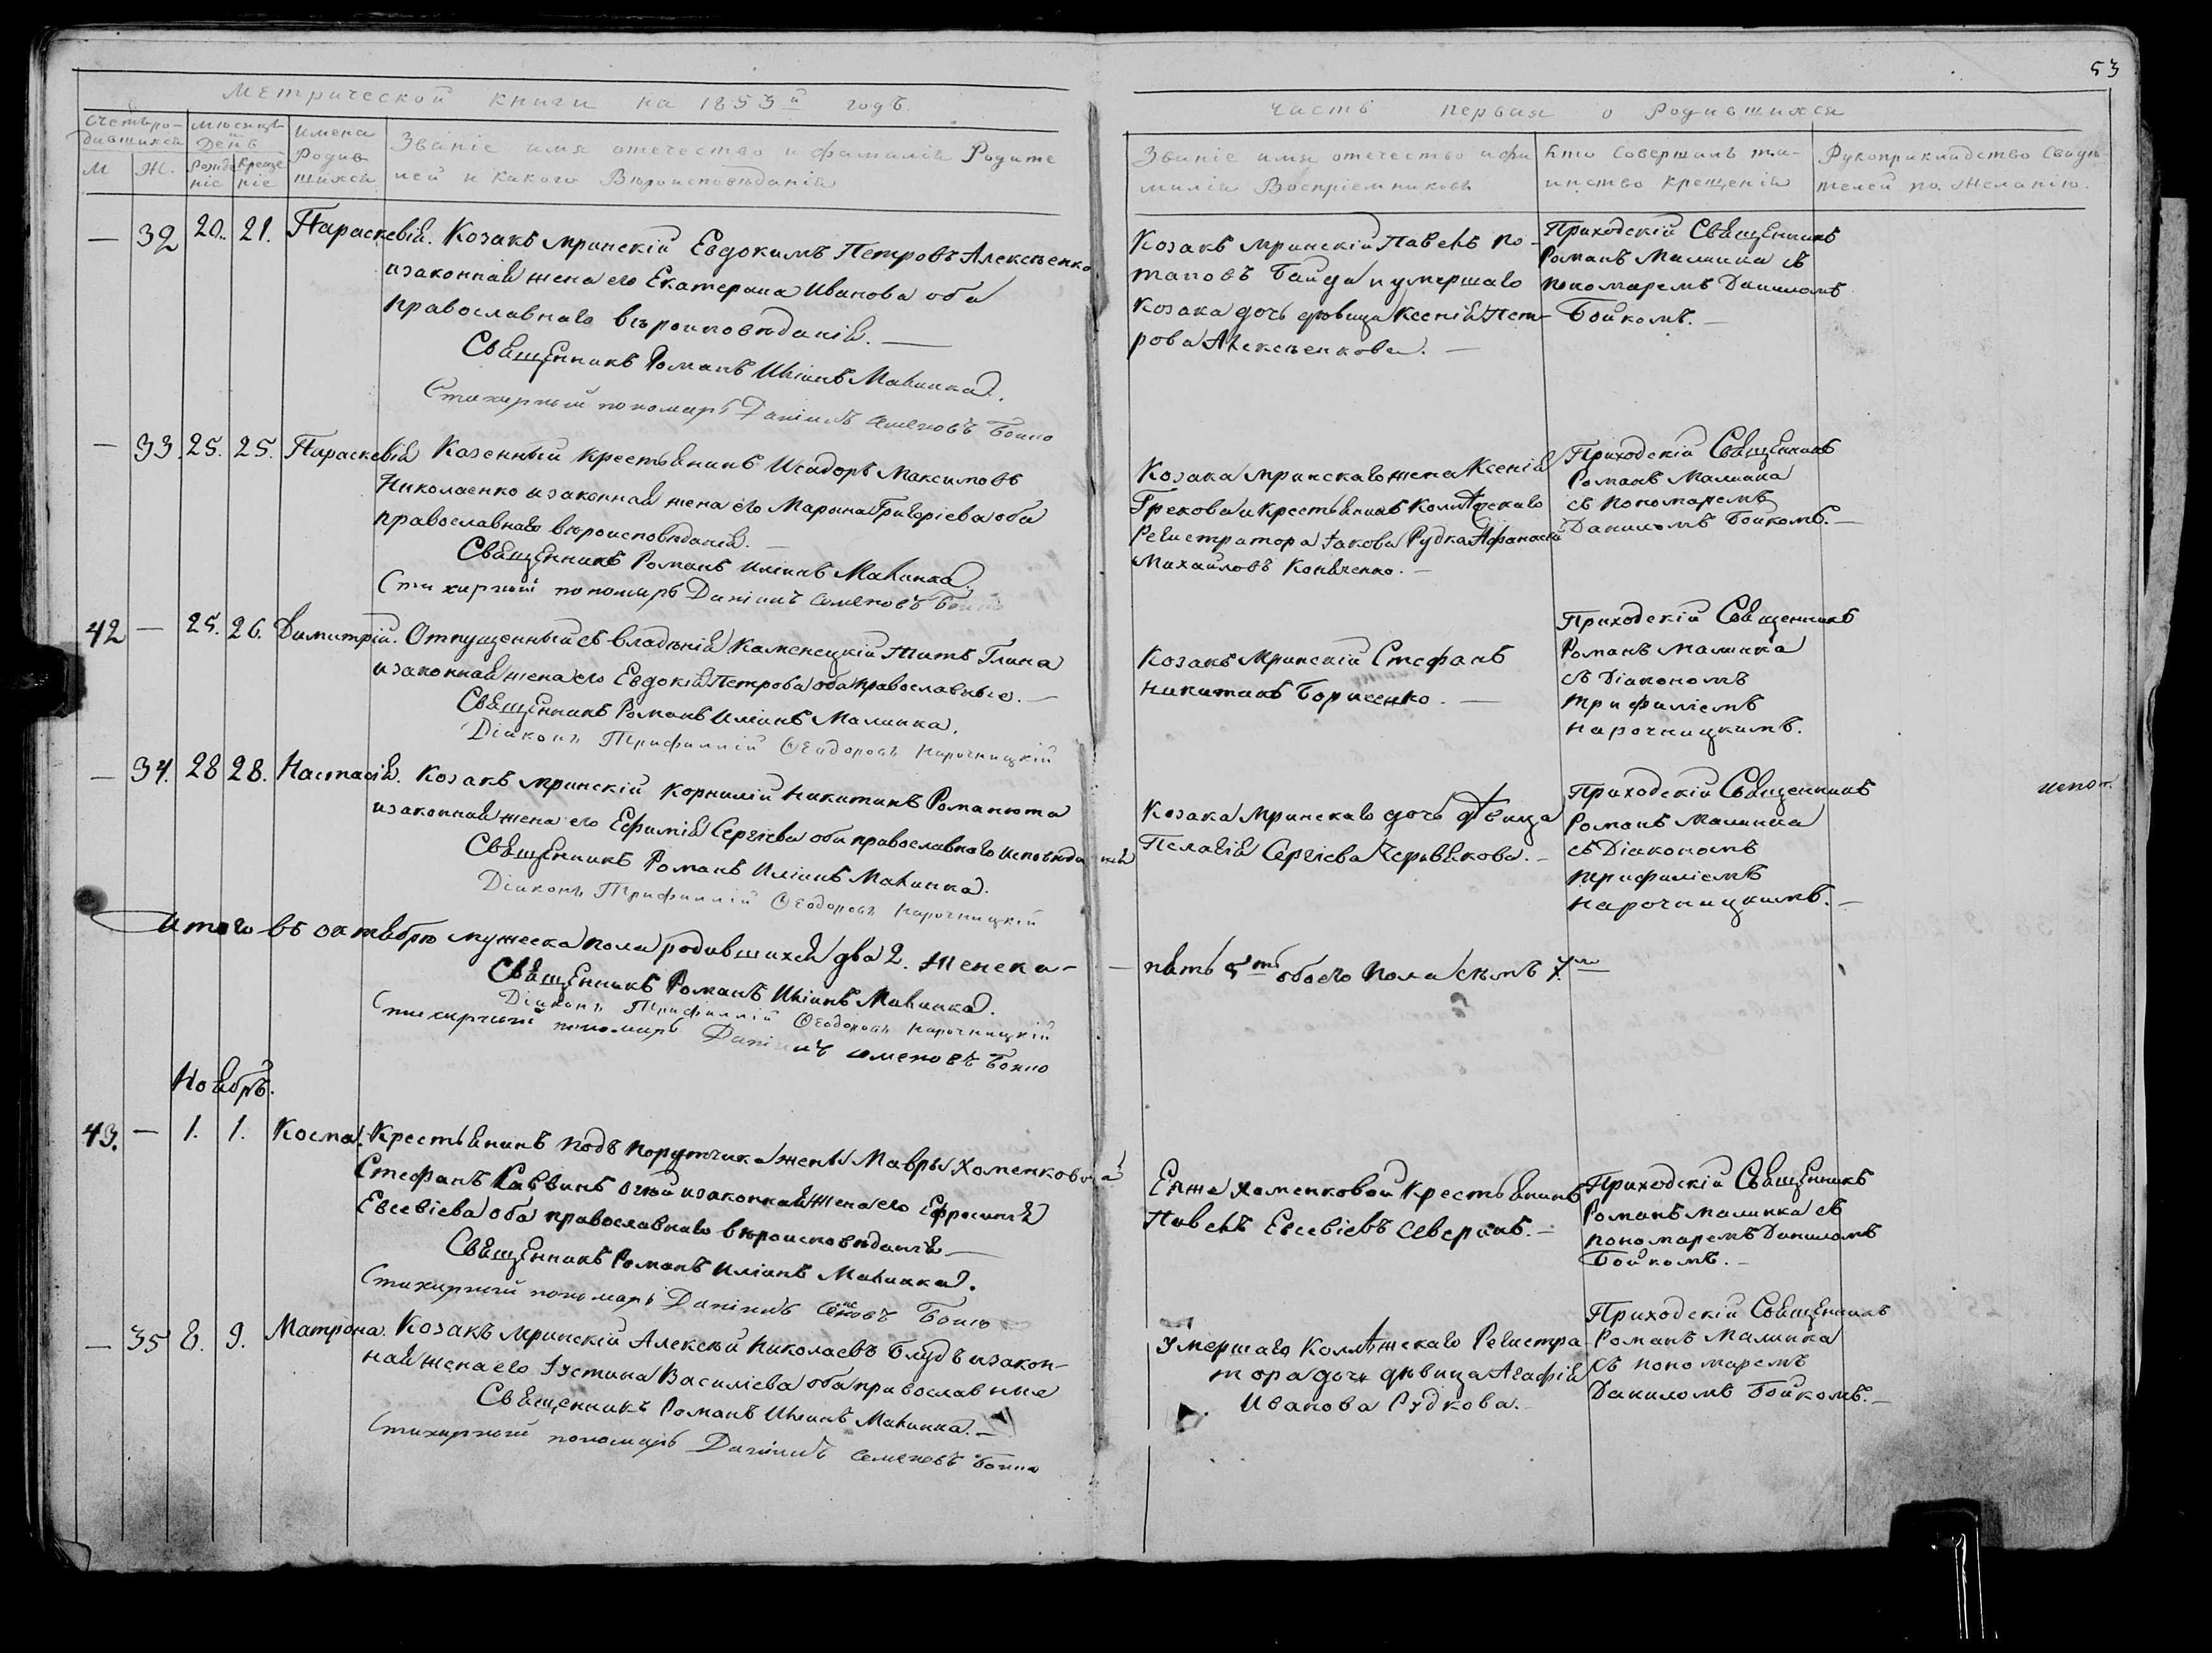 53
Метрической книги на 1853й годъ
Часть первая о Родившихся
Счетъ ро-
дившихся
Мѣсяцъ и
День
Имена
Родив
шихся
Званіе имя отечество и фамилія Родите
лей и какого Вѣроисповѣданія
М
Ж.
Рожде
ніе
Креще
ніе
Званіе имя отечество и фа
милія Воспріемниковъ
Кто Совершалъ та-
инство Крещенія
Рукоприкладство Свидѣ-
телей по Желанію.
— 32 20. 21. Параскевія. Козакъ Мринскій Евдокимъ Петровъ Алексѣенко
и законная жена его Екатерина Иванова оба
православнаго вѣроисповѣданія. —
Священникъ Романъ Иліинъ Малинка.
Стихирный пономарь Даніилъ Семеновъ Бойко
Козакъ Мринскій Павелъ По-
таповъ Байда и умершаго
Козака дочь дѣвица Ксенія Пет-
рова Алексѣенкова. —
Приходскій Священникъ
Романъ Малинка съ
пономаремъ Даниломъ
Бойкомъ. —
— 33. 25. 25. Параскевія Казенный крестьянинъ Исидоръ Максимовъ
Николаенко и законная жена его Марина Григоріева оба
православнаго вѣроисповѣданія. —
Священникъ Романъ Иліинъ Малинка.
Стихирный пономарь Даніилъ Семеновъ Бойко
Козака Мринскаго жена Ксенія
Грекова и крестьянинъ Коллѣжскаго
Регистратора Іакова Рудка Афанасій
Михайловъ Коняченко. —
Приходскій Священникъ
Романъ Малинка
съ Пономаремъ
Даниломъ Бойкомъ. —
42 — 25. 26. Димитрій. Отпущенный съ владѣнія Каменецкій Титъ Глина
и законная жена его Евдокія Петрова оба православные. —
Священникъ Романъ Иліинъ Малинка.
Діаконъ Трифиллій Ѳеодоровъ Нарочницкій
Козакъ Мринскій Стефанъ
Никитинъ Борисенко. —
Приходскій Священникъ
Романъ Малинка
съ Діакономъ
Трифиліемъ
Нарочницкимъ.
— 34. 28 28. Настасія. Козакъ Мринскій Корнилій Никитинъ Романюта
и законная жена его Ефимія Сергіева оба православнаго исповѣданія
Священникъ Романъ Иліинъ Малинка.
Діаконъ Трифиллій Ѳеодоровъ Нарочницкій
Козака Мринскаго дочь дѣвица
Пелагія Сергіева Червякова. —
Приходскій Священникъ
Романъ Малинка
съ Діакономъ
Трифиліемъ
Нарочницкимъ. —
Итого въ октябрѣ мужеска пола родившихся два 2. Женска —
— пять 5ть обоего пола семь 7мь
Священникъ Романъ Иліинъ Малинка.
Діаконъ Трифиллій Ѳеодоровъ Нарочницкій
Стихирный пономарь Даніилъ Семеновъ Бойко
Ноябрь.
43. — 1. 1. Косма. Крестьянинъ подъ порутчика жены Мавры Хоменковой
Стефанъ Саввинъ и законная жена его Ефросинія
Евсевіева оба православнаго вѣроисповѣданія —
Священникъ Романъ Иліинъ Малинка.
Стихирный пономарь Даніилъ Семеновъ Бойко
Еяже Хоменковой Крестьянинъ
Павелъ Евсевіевъ Северинъ. —
Приходскій Священникъ
Романъ Малинка съ
пономаремъ Даниломъ
Бойкомъ. —
— 35 8. 9. Матрона. Козакъ Мринскій Алексѣй Николаевъ Блудъ и закон-
ная жена его Іустина Василіева оба православные
Священникъ Романъ Иліинъ Малинка. —
Стихирный пономарь Даніилъ Семеновъ Бойко
Умершаго Коллѣжскаго Регистра-
тора дочь дѣвица Агафія
Иванова Рудкова. —
Приходскій Священникъ
Романъ Малинка
съ пономаремъ
Даниломъ Бойкомъ. —